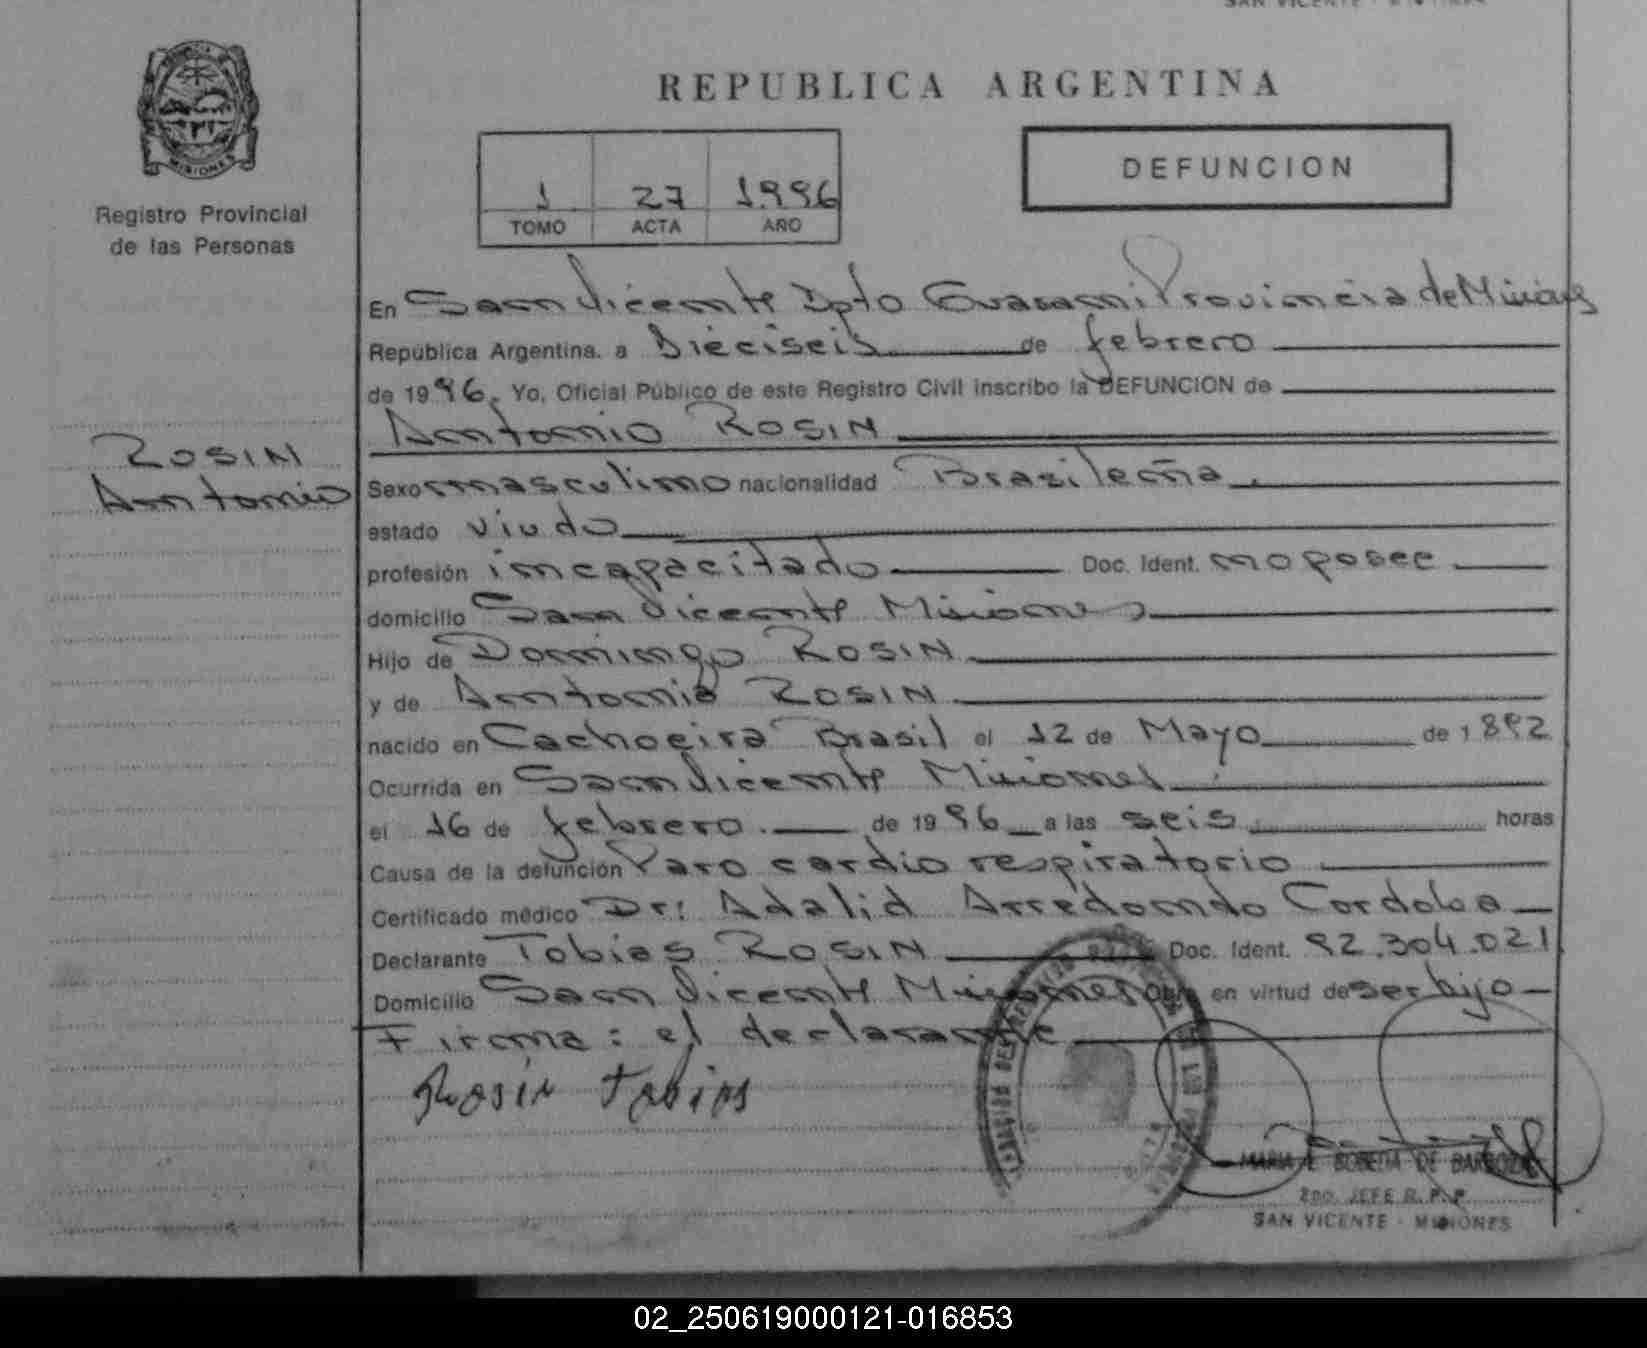 MISIONES
Registro Provincial
de las Personas
REPUBLICA ARGENTINA
1 27 1.996
TOMO ACTA AÑO
DEFUNCION
En San Vicente Dpto Guarani Provincia de Misiones
República Argentina. a Dieciseis de febrero
de 1996. Yo, Oficial Público de este Registro Civil inscribo la DEFUNCION de
Antonio ROSIN
ROSIN
Antonio
Sexo masculino nacionalidad Brasileña
estado viudo
profesión incapacitado Doc. Ident. no posee
domicilio San Vicente Misiones
Hijo de Domingo ROSIN
y de Antonia ROSIN
nacido en Cachoeira Brasil el 12 de Mayo de 1892
Ocurrida en San Vicente Misiones
el 16 de febrero. de 1996 a las seis horas
Causa de la defunción Paro cardio respiratorio
Certificado médico Dr: Adalid Arredondo Cordoba
Declarante Tobias ROSIN Doc. Ident. 92.304.021
Domicilio San Vicente Misiones Obra en virtud de ser hijo
Firma: el declarante
Rosin Tobias
MARIA E. BOBEDA DE BARBOZA
2do. JEFE R. P. P.
SAN VICENTE - MISIONES
02_250619000121-016853